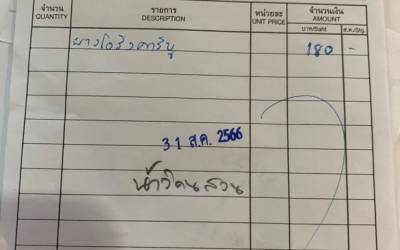 จำนวน รายการ หน่วยละ จำนวนเงิน
QUANTITY DESCRIPTION UNIT PRICE AMOUNT
บาท/Baht ส.ต./Stg.
ยางโอริงคาร์บู 180 -
31 ส.ค. 2566